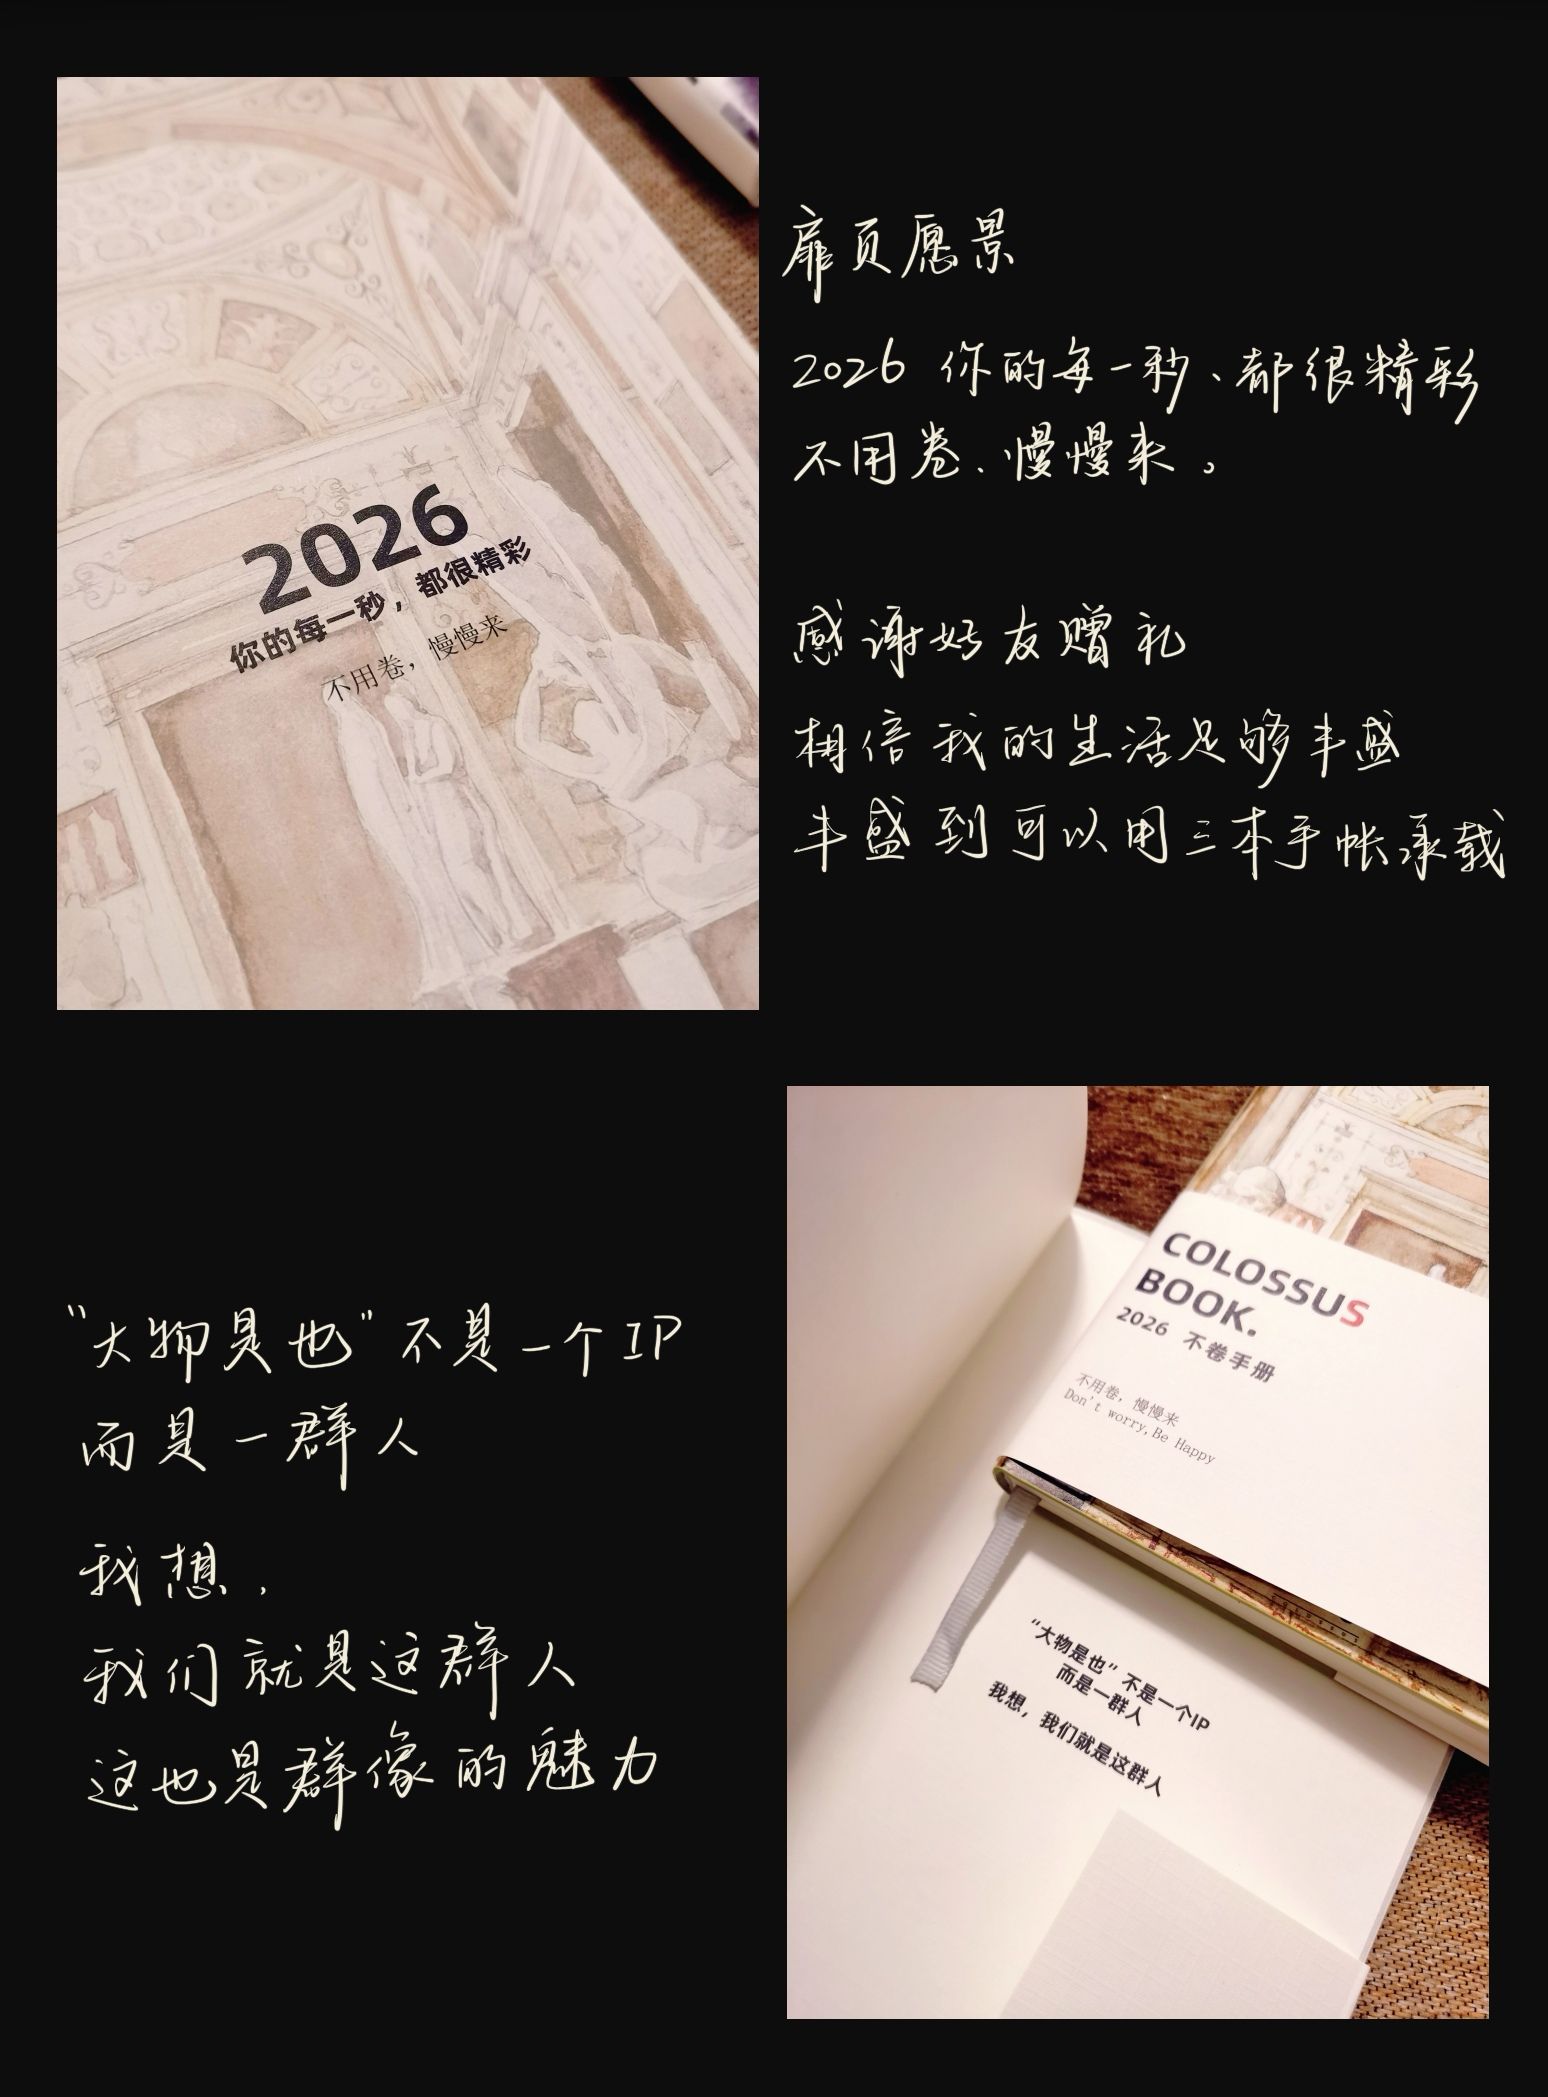 2026
你的每一秒，都很精彩
不用卷，慢慢来
扉页愿景
2026 你的每一秒、都很精彩
不用卷、慢慢来。
感谢好友赠礼
相信我的生活足够丰盛
丰盛到可以用三本手帐承载
“大物是也”不是一个IP
而是一群人
我想，
我们就是这群人
这也是群像的魅力
COLOSSUS
BOOK.
2026 不卷手册
不用卷，慢慢来
Don't worry,Be Happy
“大物是也”不是一个IP
而是一群人
我想，我们就是这群人